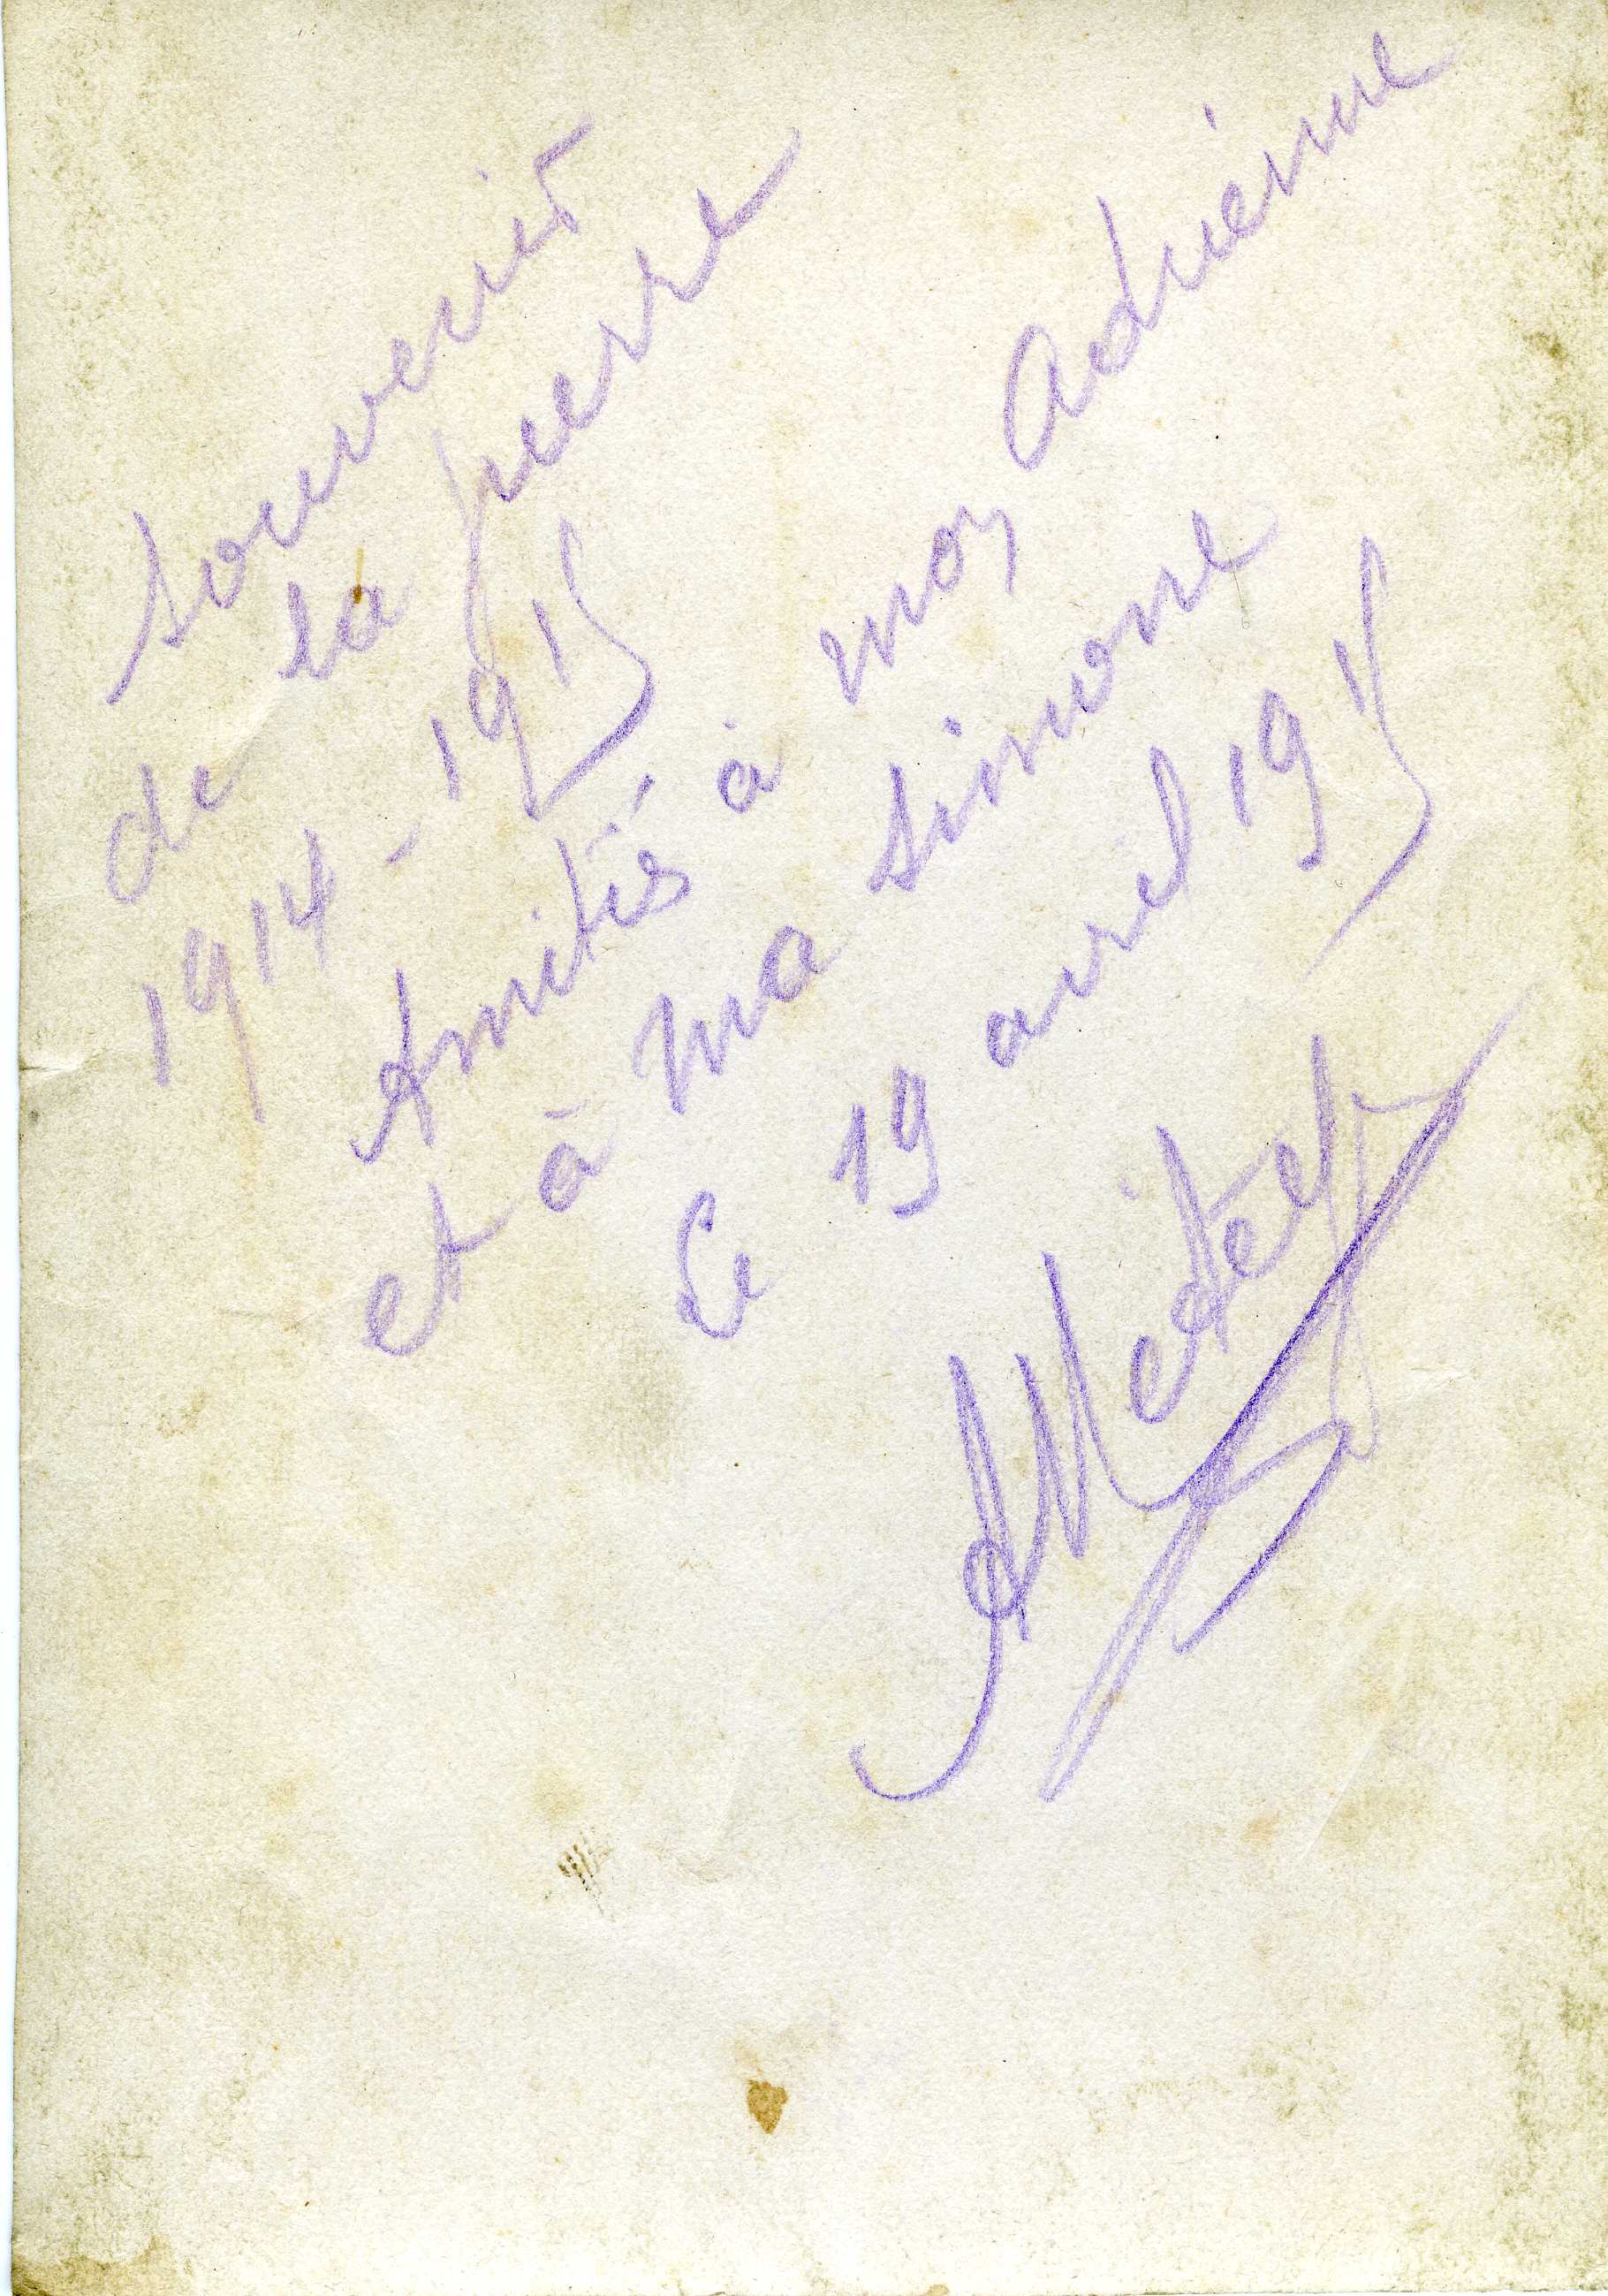 Souvenir
de la guerre
1914 - 1915
Amitiés à moy Adrienne
et à ma Simone
Ce 19 avril 1915